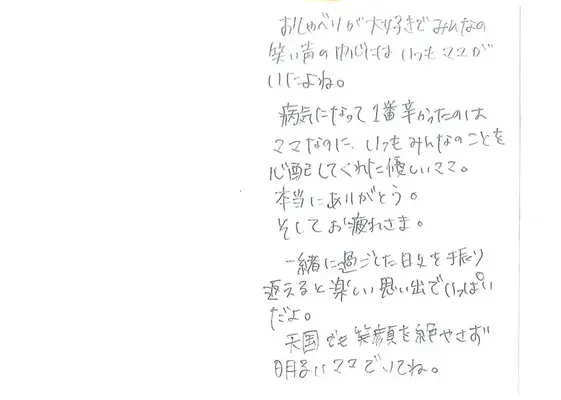 おしゃべりが大好きでみんなの
笑い声の中心にはいつもママが
いたよね。
病気になって1番辛かったのは
ママなのに、いつもみんなのことを
心配してくれた優しいママ。
本当にありがとう。
そしてお疲れさま。
一緒に過ごした日々を振り
返えると楽しい思い出でいっぱい
だよ。
天国でも笑顔を絶やさず
明るいママでいてね。